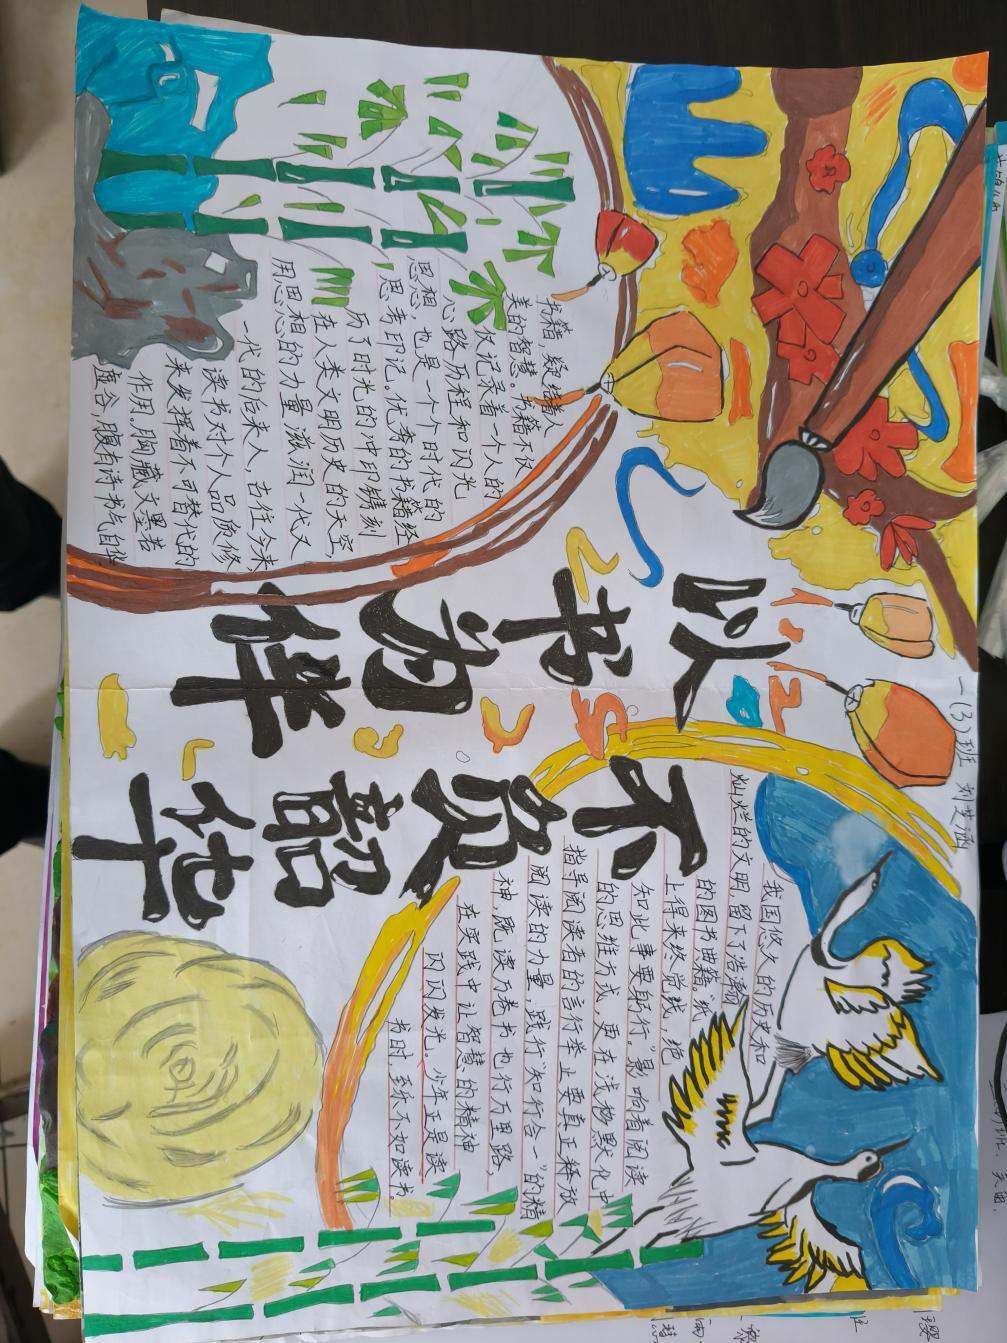 一(3)班 刘芝涵
以书为伴
不负韶华
书籍，凝结着人
美的智慧。书籍不仅
仅记录着一个人的
心路历程和闪光
思想，也是一个个时代的
思考印记。优秀的书籍经
历了时光的冲印镌刻
在人类文明历史的天空，
用思想的力量滋润一代又
一代的后来人，古往今来，
读书对个人品质修
来发挥着不可替代的
作用，胸藏文墨若
虚谷，腹有诗书气自华
我国悠久的历史和
灿烂的文明，留下了浩瀚
的图书典籍“纸
上得来终觉浅，绝
知此事要躬行。”影响着阅读
的思维方式，更在浅物默化中
指导阅读者的言行举止要真正释放
阅读的力量，践行“知行合一”的精
神，既读万卷书也行万里路，
在实践中让智慧的精神
闪闪发光。少年正是读
书时，至乐不如读书。